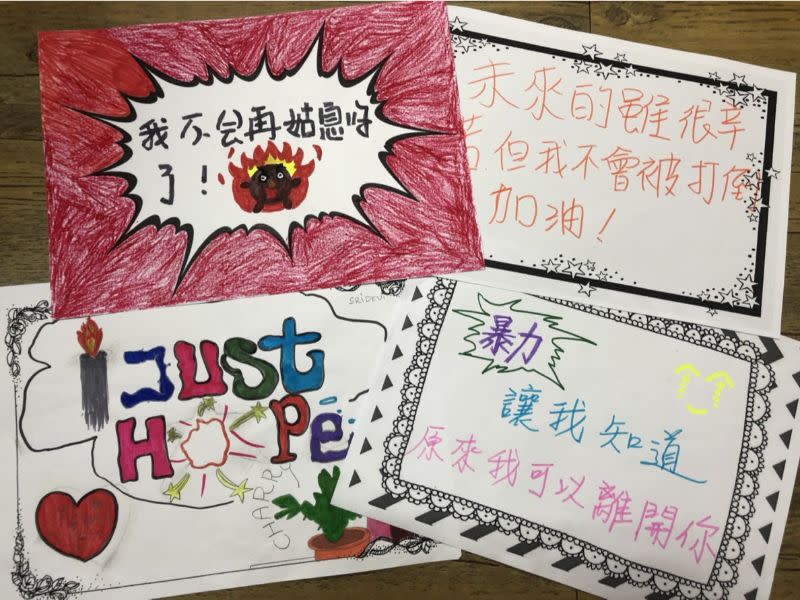 我不会再姑息你
了!
未來的雖很辛
苦 但我不會被打倒
加油!
SRIDEVI
Just
HOPe
CHARRY
暴力
讓我知道
原來我可以離開你